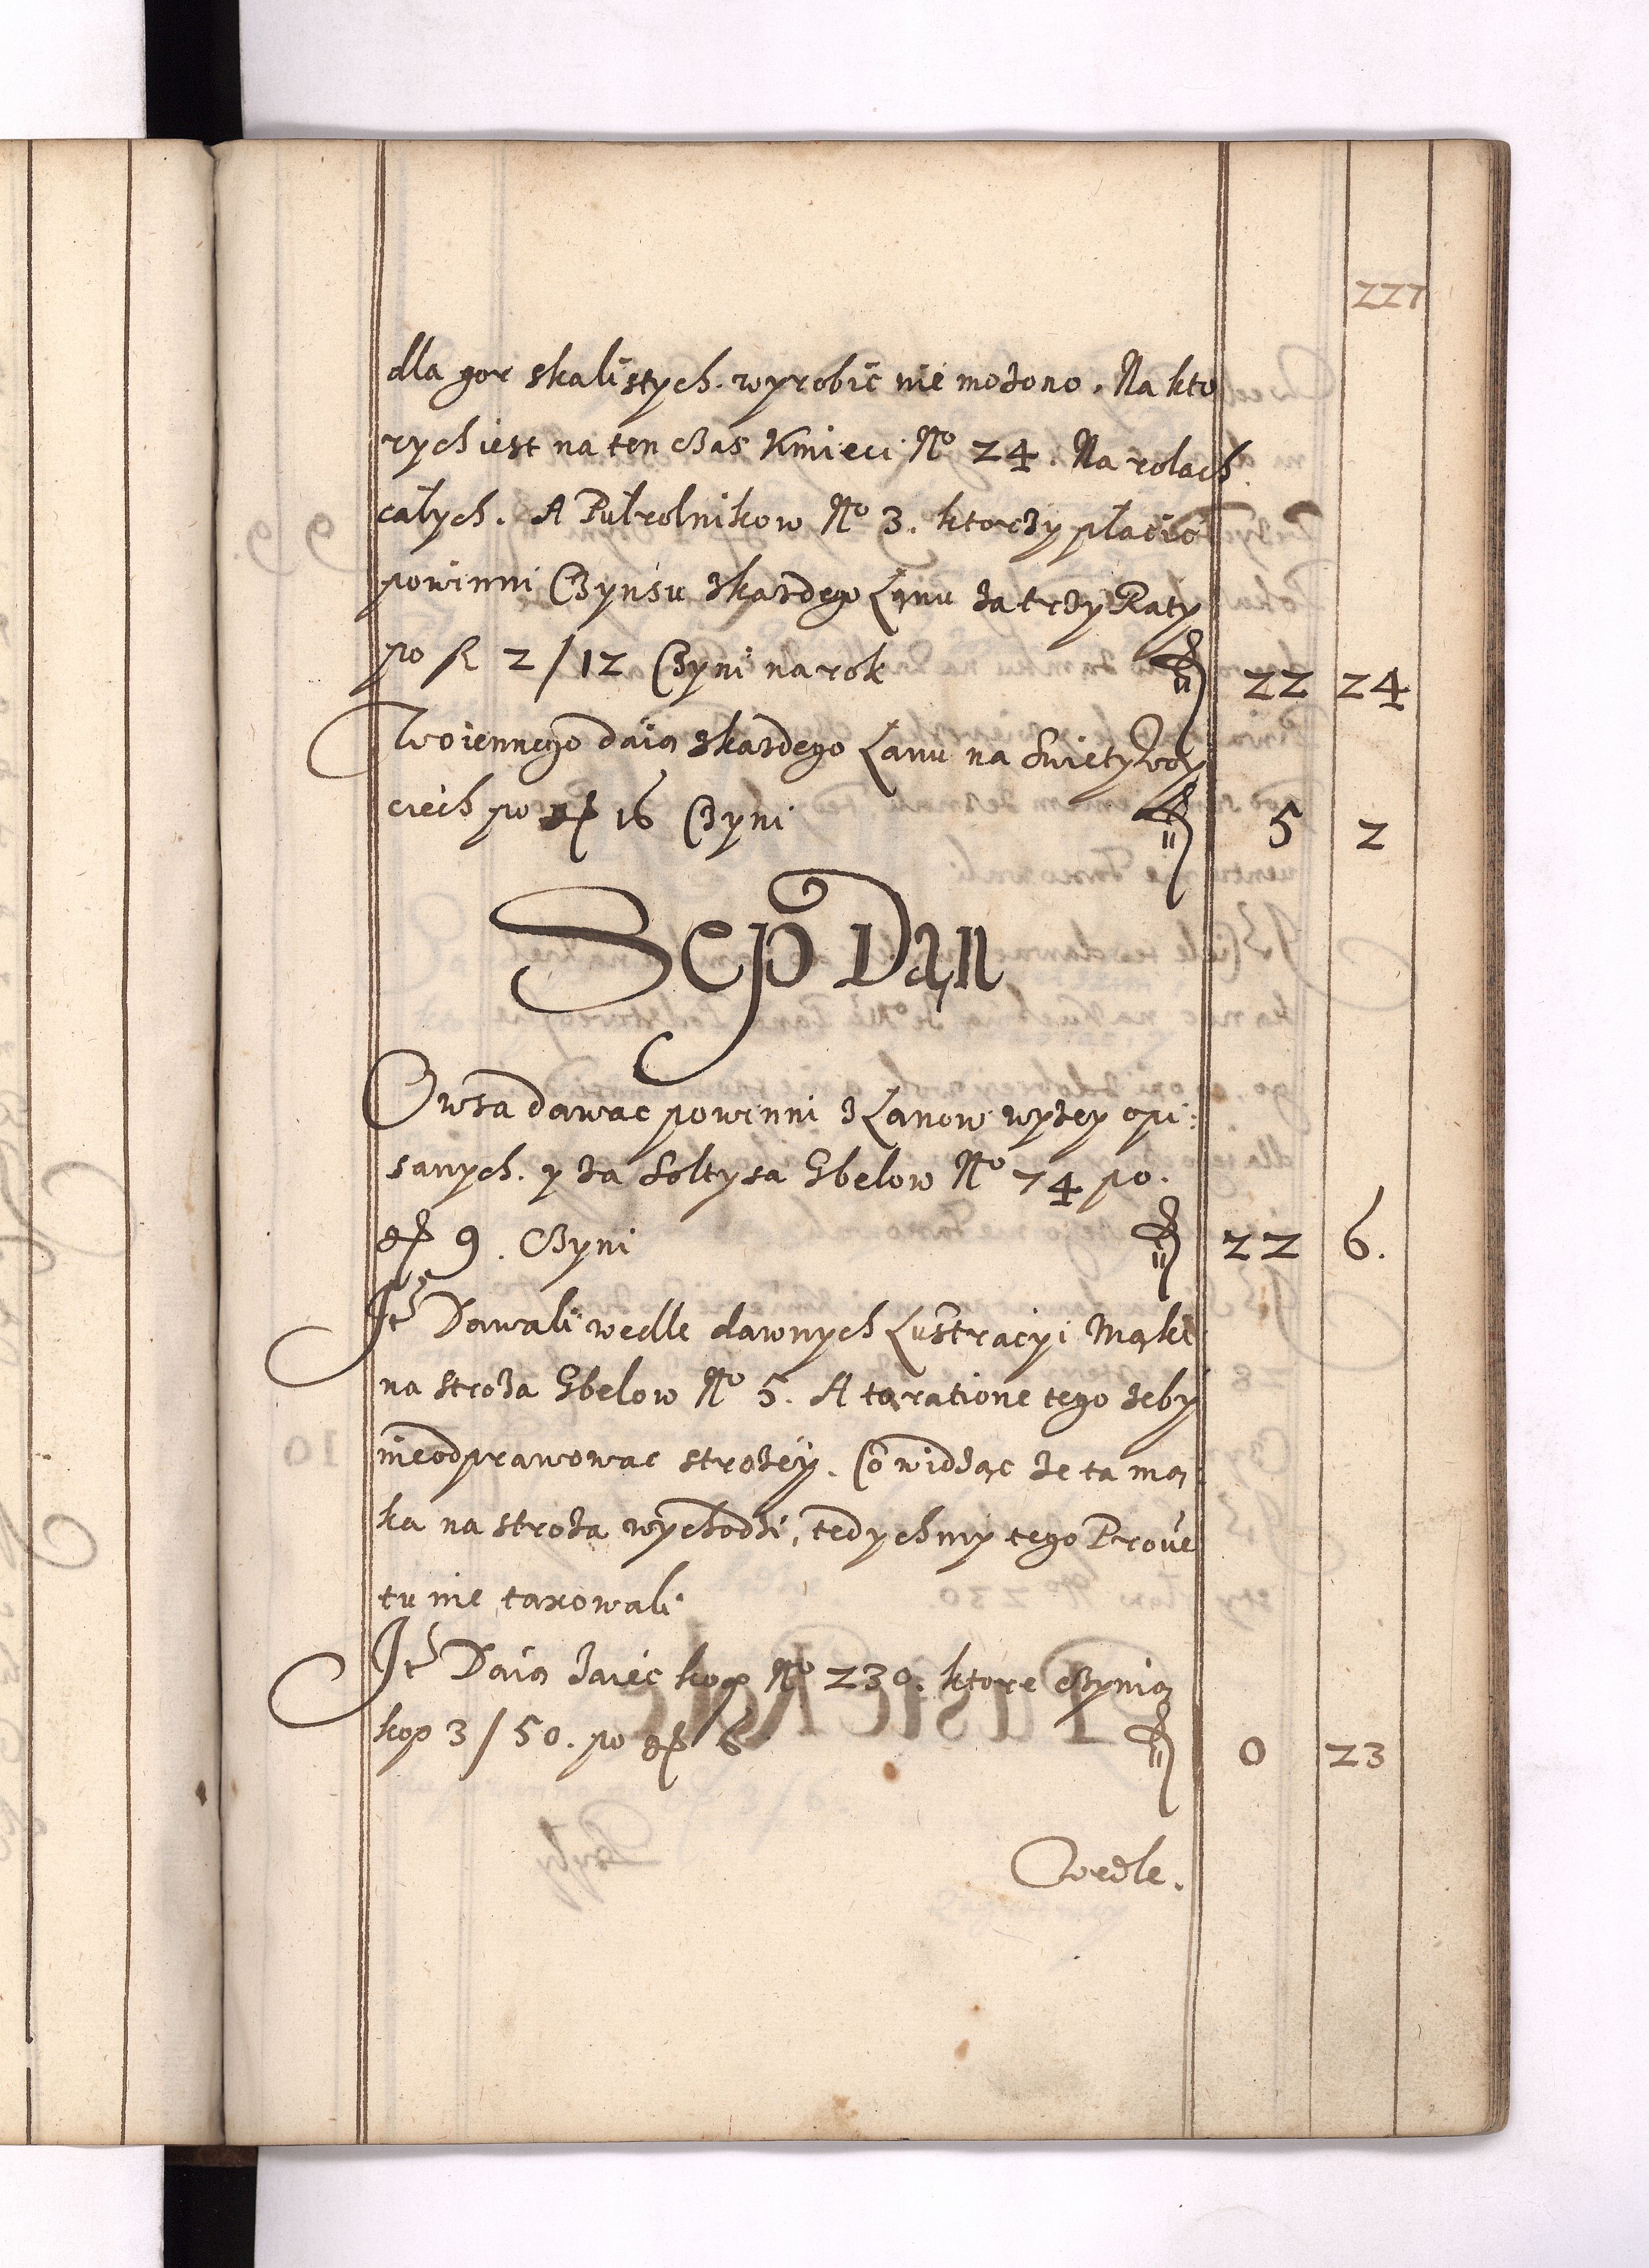 227
dla gor skalistych. wyrobić nie możono. Na kto
rych iest na ten czas Kmieci No 24. Na rolach
całych. A Pułrolnikow No 3. ktorzy płacić
powinni Czynszu zkazdego Łanu za trzy Raty
po fl 2/12 Czyni na rok fl 22 24
Woiennego daią zkazdego Łanu na Swięty Woy
ciech po gr 16 Czyni fl 5 2
Sep Dan
Owsa dawac powinni z Łanow wyzey opi:
sanych. y za Soltysa Gbelow No 74 po.
gr 9. Czyni fl 22 6.
Ite Dawali wedle dawnych Lustracyi Mąki
na stroza Gbelow No 5. A ta ratione tego zeby
nieodprawowac strozey. Co widząc ze ta mą:
ka na stroza wychodzi, tedychmy tego Prove
tu nie taxowali
Ite Daią Jaiec kop No 230. ktore czynią
kop 3/50. po gr 6 fl 0 23
Wedle.